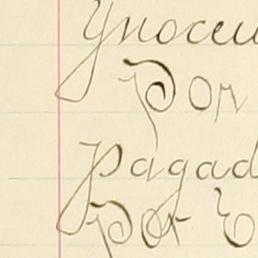 Ynocen
Por
pagad
por E